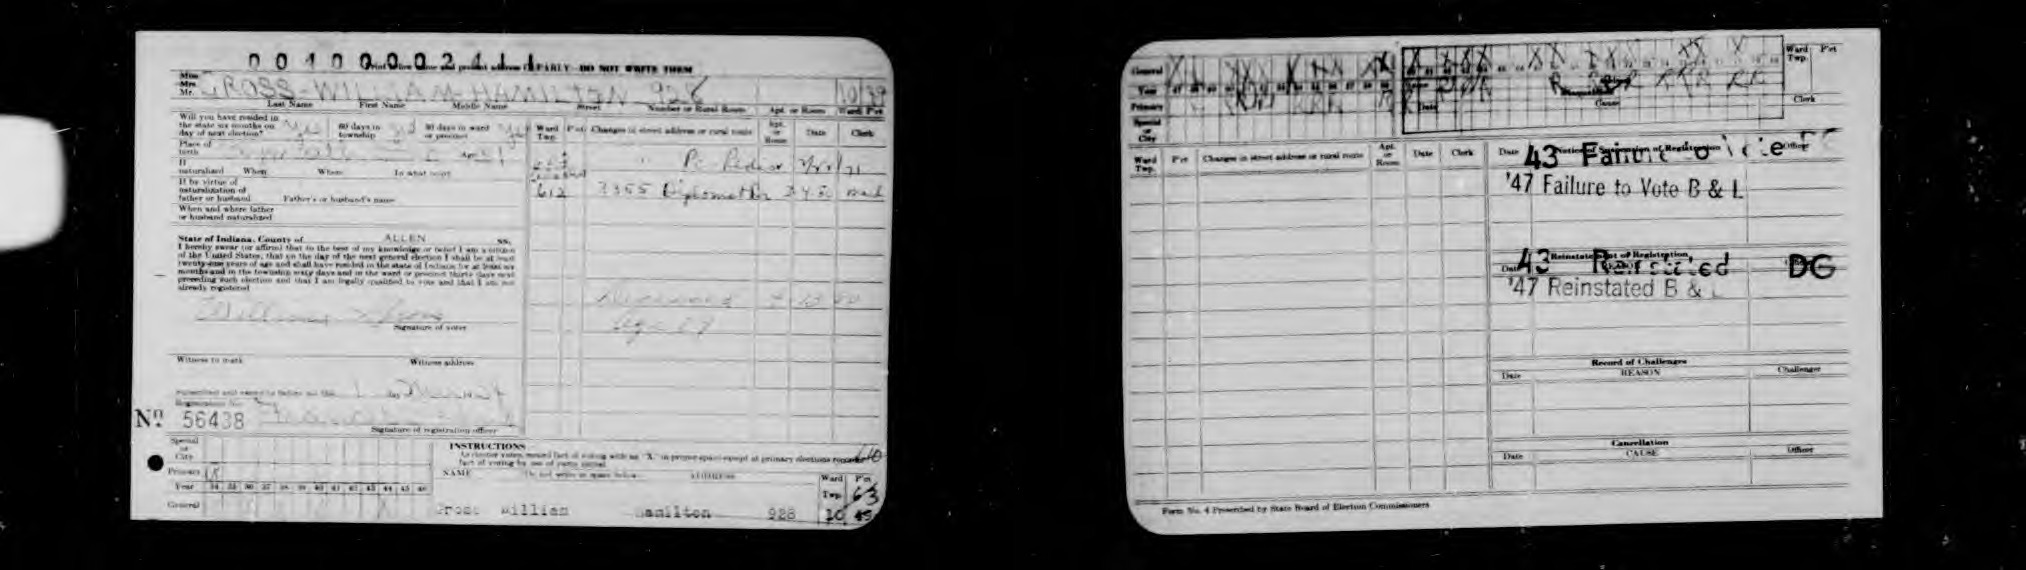 0010000241
Print below name and present address CLEARLY—DO NOT WRITE THEM
Miss
Mrs.
Mr. GROSS-WILLIAM-HAMILTON 928 10 39
Last Name First Name Middle Name Street Number or Rural Route Apt. or Room Ward P'ct
Will you have resided in
the state six months on
day of next election? Yes 60 days in
township 30 days in ward
or precinct Yes
Ward
Twp. P'ct Changes in street address or rural route Apt.
or
Room Date Clerk
Place of
birth Age
If
naturalized When Where In what court
If by virtue of
naturalization of
father or husband Father's or husband's name
612 3355 Diplomat Dr
When and where father
or husband naturalized
State of Indiana, County of ALLEN ss.
I hereby swear (or affirm) that to the best of my knowledge or belief I am a citizen
of the United States, that on the day of the next general election I shall be at least
twenty-one years of age and shall have resided in the state of Indiana for at least six
months and in the township sixty days and in the ward or precinct thirty days next
preceding such election and that I am legally qualified to vote and that I am not
already registered
William Gross
Signature of voter
Deceased
Age
Witness to mark Witness address
Subscribed and sworn to before me this day
Registration No.
No. 56438
Signature of registration officer
Special
or
City
Primary
Year 34 35 36 37 38 39 40 41 42 43 44 45 46
General
INSTRUCTIONS
As elector votes, record fact of voting with an "X" in proper space except at primary elections record
fact of voting by use of party initial
610
NAME Do not write in space below ADDRESS
Ward
Twp. P'ct
63
Gross William Hamilton 928 10 45
General
Year
Primary
Special
or
City
Ward
Twp. P'ct
Clerk
Date Cause
Ward
Twp. P'ct Changes in street address or rural route Apt.
or
Room Date Clerk
Date Notice of Suspension of Registration Officer
43 Failure to Vote
'47 Failure to Vote B & L
Reinstatement of Registration
Date 43 Reinstated DG
'47 Reinstated B & L
Record of Challenges
Date REASON Challenger
Cancellation
Date CAUSE Officer
Form No. 4 Prescribed by State Board of Election Commissioners